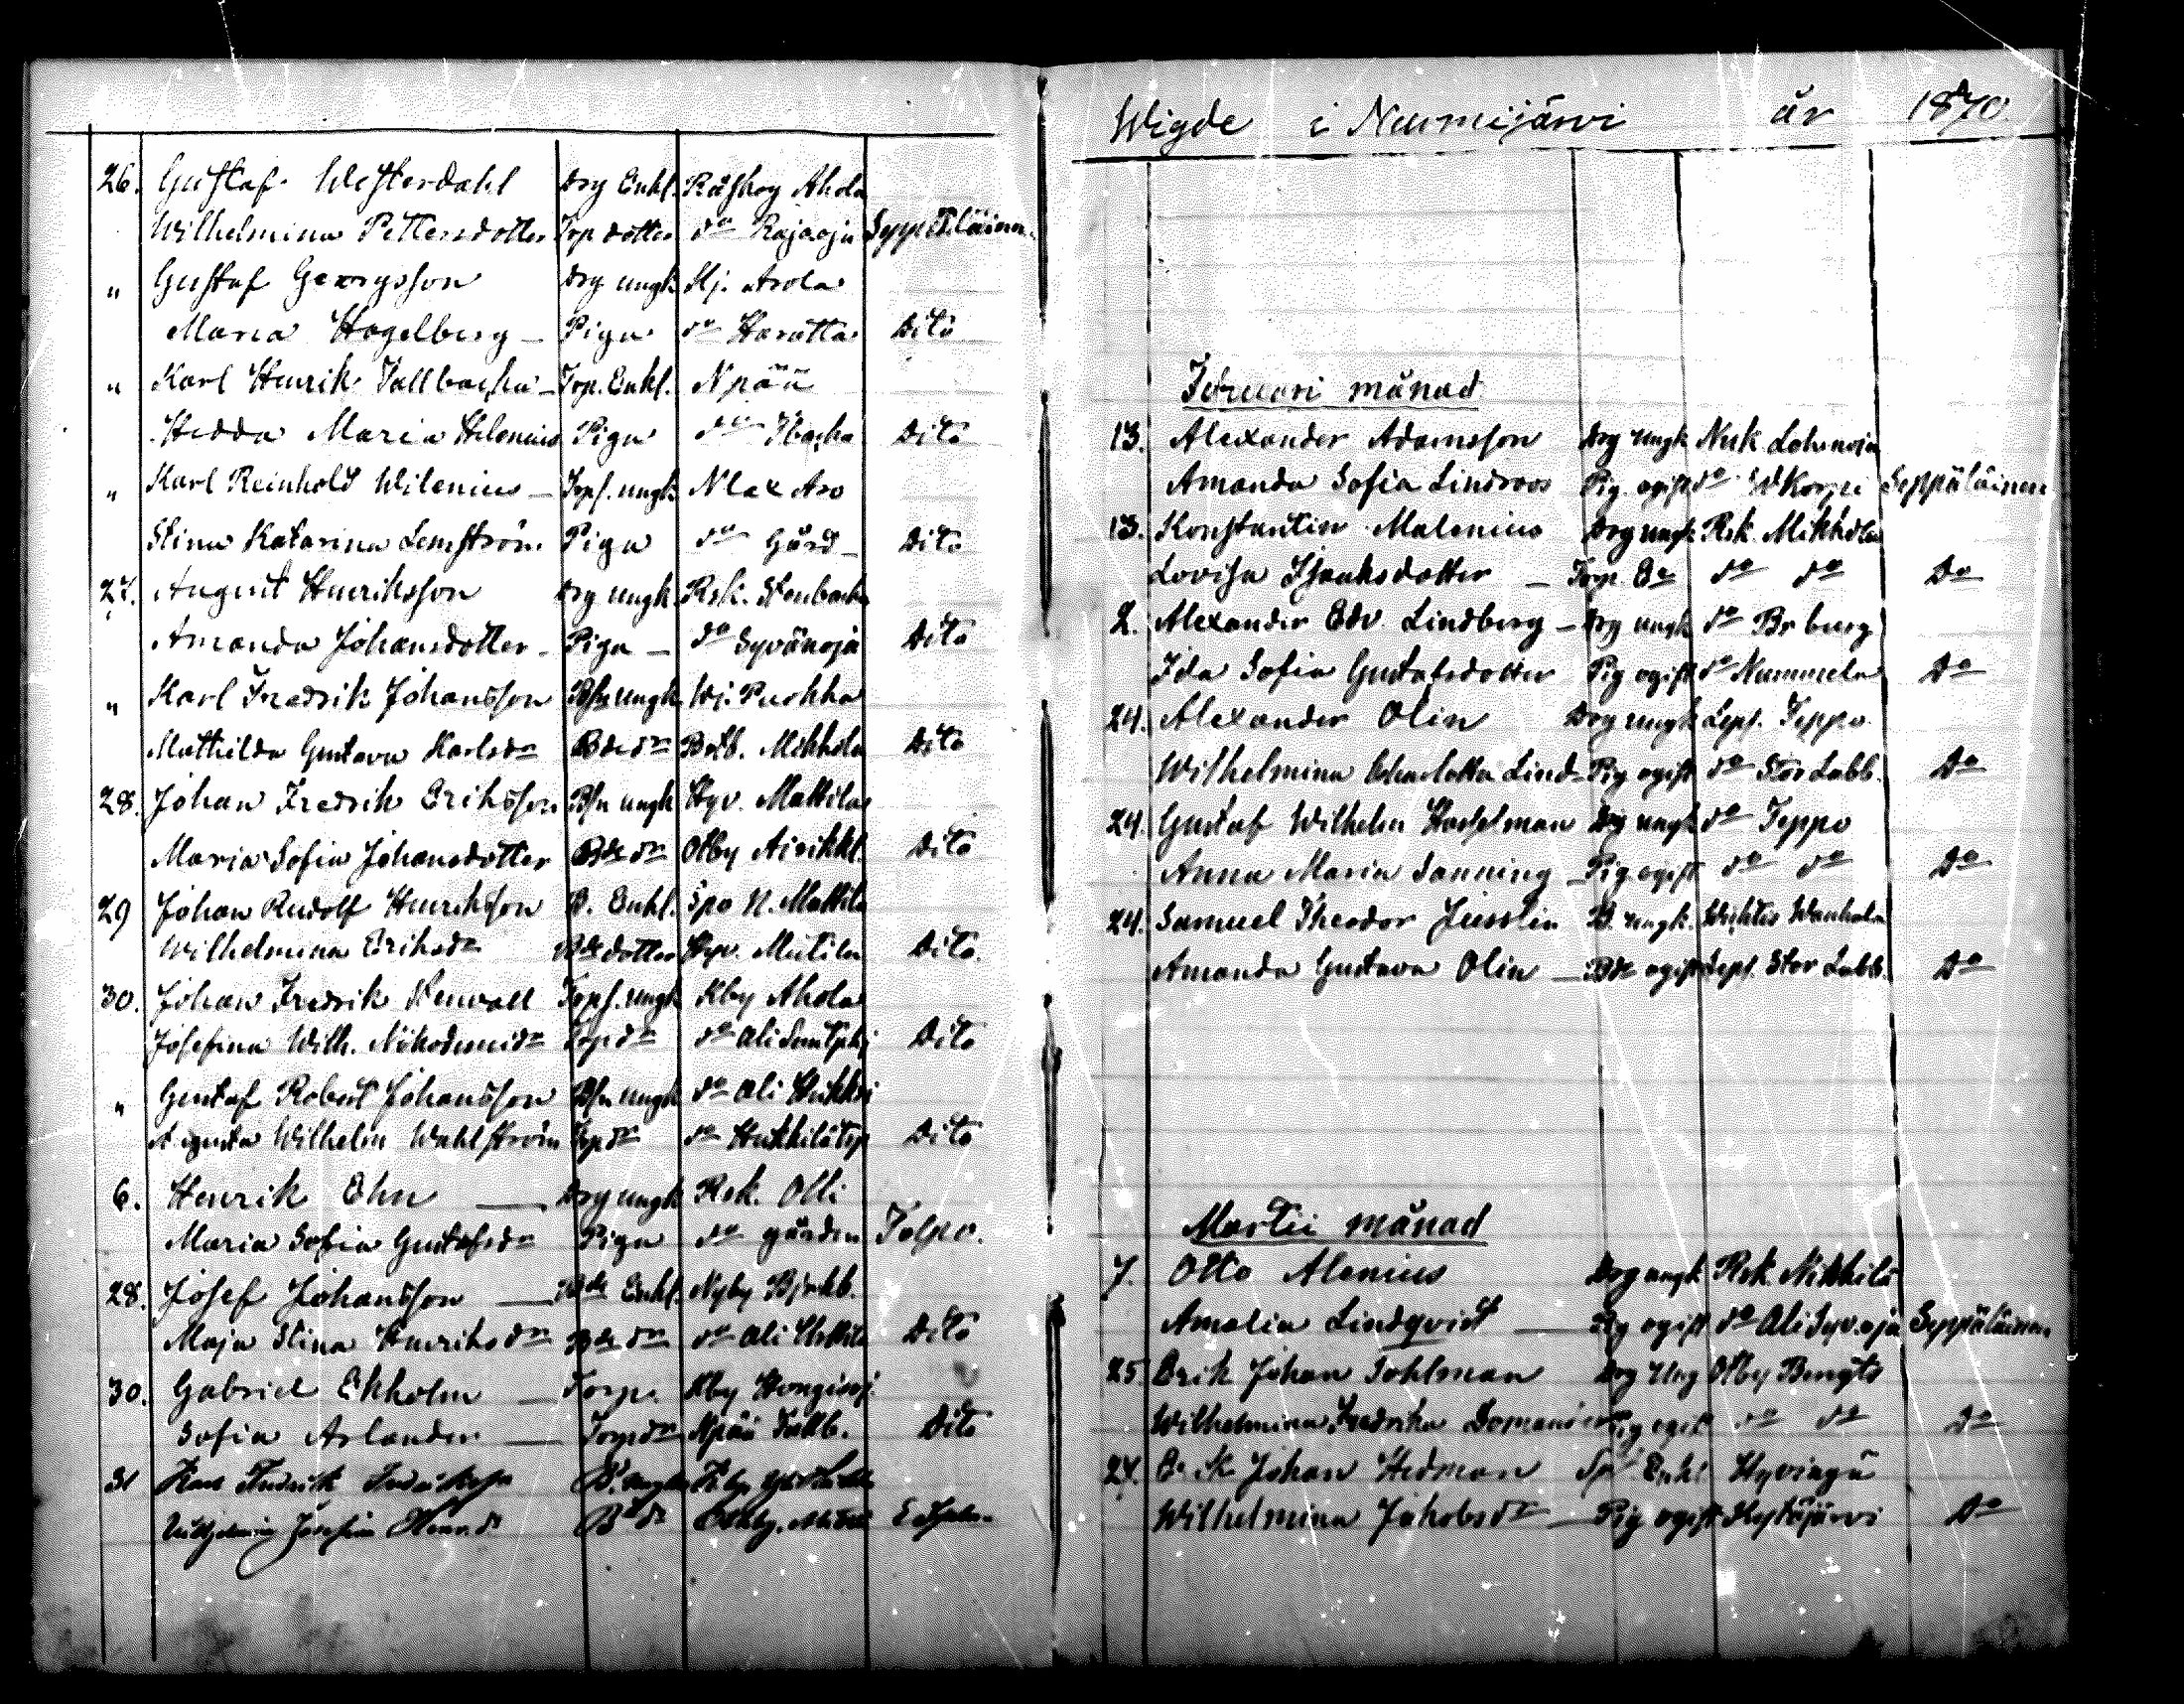 26. Gustaf Westerdahl Drg Enkl. Råskog Ahola
Wilhelmina Pettersdotter Torp dotter do Rajaoja Seppäläinen
" Gustaf Georgsson Drg ungk Skj. Arola
Maria Hagelberg – Piga do Haratta Dito
" Karl Henrik Tallbacka – Torp. Enkl. Npää
Hedda Maria Helenius Piga do Ibacka Dito
" Karl Reinhold Wilenius – Torps. ungk Nlax Aro
Stina Katarina Lemström Piga do Gård – Dito
27. August Henriksson Drg ungk. Rsk. Stenbacka
Amanda Johansdotter – Piga – do Syvänoja Dito
" Karl Fredrik Johansson Bsn ungk. Wj. Purkka
Mathilda Gustava Karlsdr Bdedr Bolb. Mikkola Dito
28. Johan Fredrik Eriksson Bsn ungk Hyv. Mattila
Maria Sofia Johansdotter Bde dr Olby Airikkl. Dito
29 Johan Rudolf Henriksson B. Enkl. Spo N. Mattila
Wilhelmina Eriksdr Bde dotter Hyv. Mutila Dito.
30. Johan Fredrik Stenvall Torps. ungk Kby Ahola
Josefina Wilh. Nikodemidr Torpdr do Ali Dito
" Gustaf Robert Johansson Bsn ungk do Ali Hukkri
Augusta Wilhelm Wahlström Torpdr do Dito
6. Henrik Ehn — Drg ungk Rsk. Olli
Maria Sofia Gustafsdr Piga do gården Tolpo.
28. Josef Johansson — Bde Enkl. Nyby Bjrkb.
Maja Stina Henriksdr Bde dr do Ali Dito
30. Gabriel Ekholm – Torp. Kby
Sofia Arlander — Torpdr Npää Tallb. Dito
31 Karl Fredrik B. ungk
Wilhelmina Josefina Henrdr Bde dr
Wigde i Nurmijärvi år 1870.
Februari månad
13. Alexander Adamsson Drg ungk Nuk Lohenoja
Amanda Sofia Lindroos Pig. ogift do WKorpi Seppäläinen
13. Konstantin Malenius Drg ungk Rsk. Mikkola
Lovisa Isaaksdotter – Torp. Ea do do Do
2. Alexander Edv. Lindberg – Drg ungk do Br berg
Ida Sofia Gustafsdotter Pig ogift do Nummela Do
24. Alexander Olin Drg ungk Leps. Teppo
Wilhelmina Charlotta Lind – Pig ogift do Stor Labb. Do
24. Gustaf Wilhelm Hasselman Drg ungk do Teppo
Anna Maria Sanning – Pig ogift do do Do
24. Samuel Theodor Jusslin B. ungk. Wichtis Wanhala
Amanda Gustava Olin – Bde ogift Leps. Stor Labb. Do
Martii månad
7. Otto Alenius Drg ungk Rsk Nikkilä
Amalia Lindqvist — Pig ogift do Ali Syv.oja Seppäläinen
25. Erik Johan Tohlman Drg Ung Olby Bengts
Wilhelmina Fredrika Pig ogift do do Do
24. Erik Johan Hedman Enkl Hyvingä
Wilhelmina Jakobsdr – Pig ogift Kytäjärvi Do